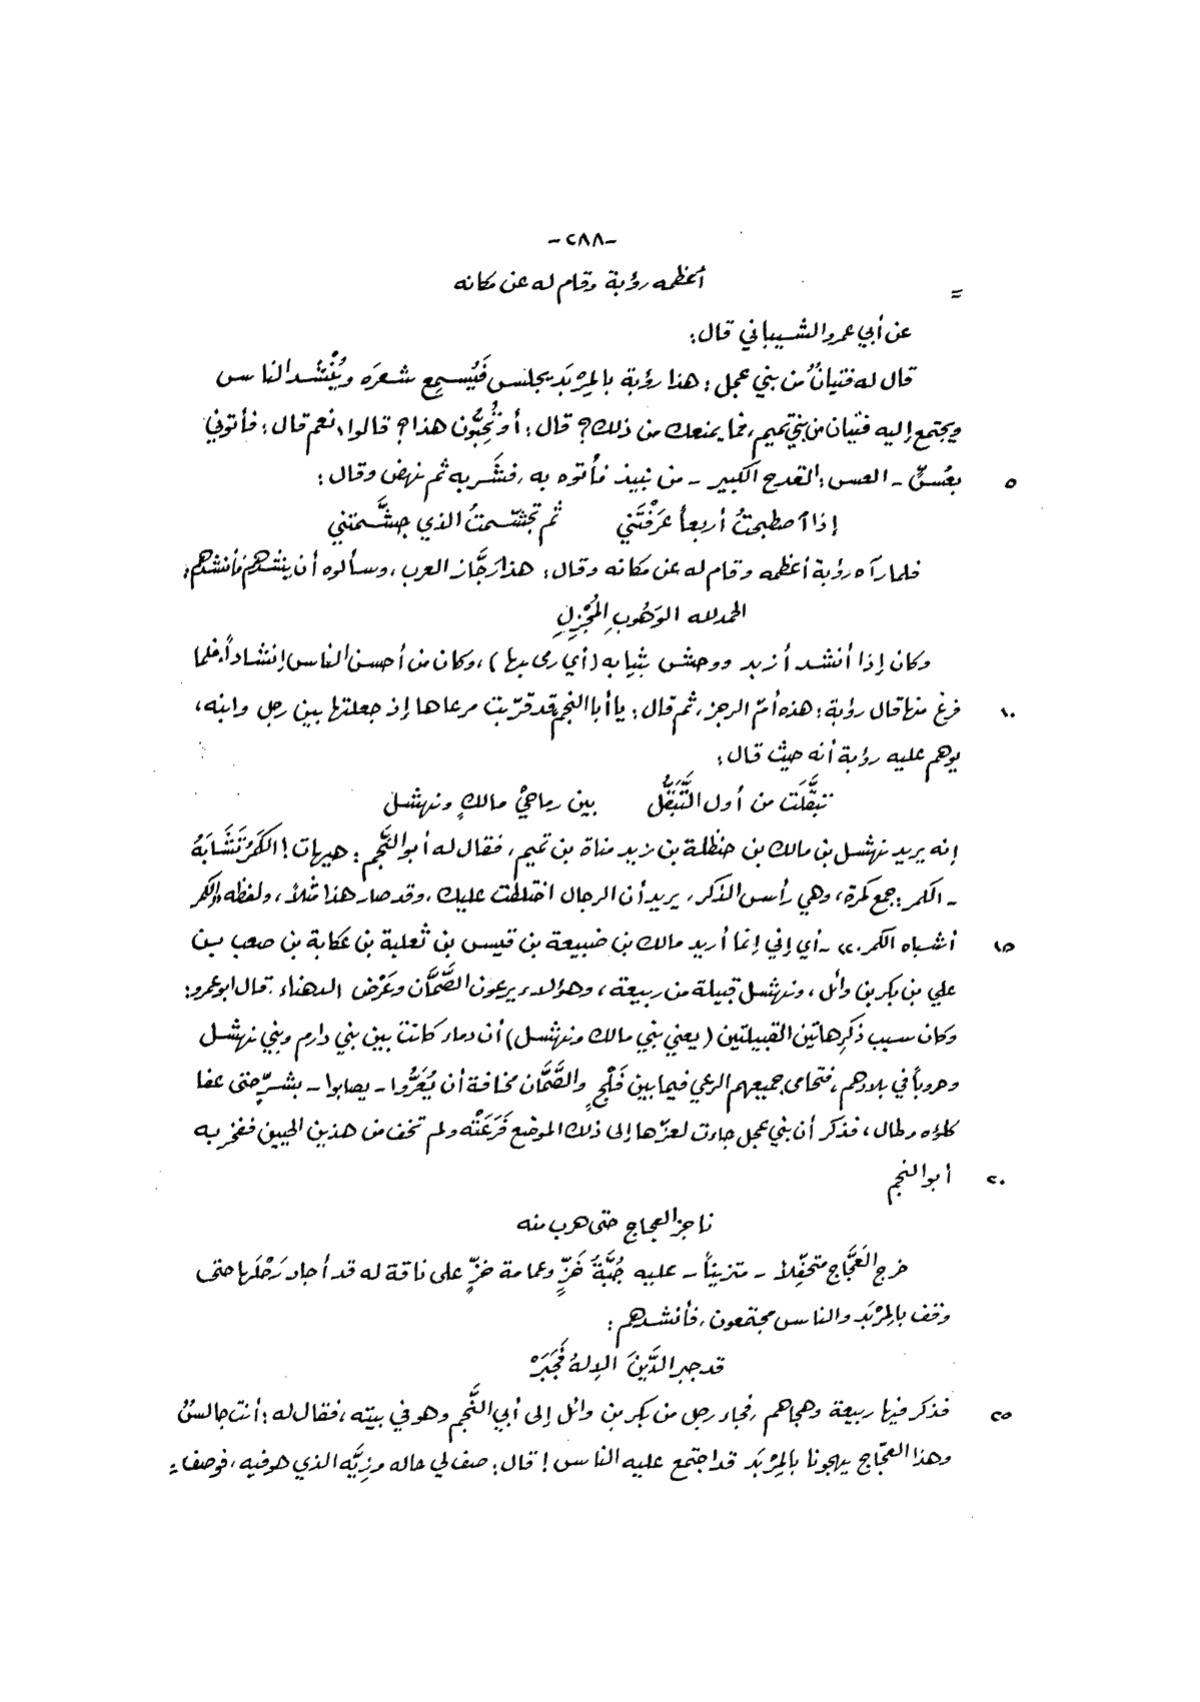 -٢٨٨-
= أعظمه رؤبة وقام له عن مكانه
عن أبي عمرو الشيباني قال:
قال له فتيانٌ من بني عجل: هذا رؤبة بالمِرْبَد يجلس فَيُسمِع شعرَه ويُنْشد الناس
ويجتمع إليه فتيان من بني تميم، فما يمنعك من ذلك؟ قال: أوَتُحِبُّون هذا؟ قالوا، نعم قال: فأتوني
٥ بعُسٍّ - العس: القدح الكبير - من نبيذ فأتوه به، فشَربه ثم نهض وقال:
إذا أصطبحتُ أربعاً عَرَفْتَني ثم تجشّمتُ الذي جشَّمتني
فلما رآه رؤبة أعظمه وقام له عن مكانه وقال: هذا رَجَّاز العرب، وسألوه أن ينشدهم فأنشدهم:
الحمد لله الوَهُوبِ المُجْزِلِ
وكان إذا أنشد أزبد ووحش بثيابه (أي رمى بها)، وكان من أحسن الناس إنشاداً، فلما
١٠ فرغ منها قال رؤبة: هذه أمّ الرجز، ثم قال: يا أبا النجم قد قرّبت مرعاها إذ جعلتها بين رجل وابنه،
يوهم عليه رؤبة أنه حيث قال:
تَبقَّلَت من أول التَّبَقُّل بين رماحيْ مالكٍ ونهشل
إنه يريد نهشل بن مالك بن حنظلة بن زيد مناة بن تميم، فقال له أبو النَّجم: هيهات! الكمَرُ تَشَابَهُ
- الكمر: جمع كمرة، وهي رأس الذكر، يريد أن الرجال اختلطت عليك، وقد صار هذا مثلاً، ولفظه «الكمر
١٥ أشباه الكمر.» - أي إني إنما أريد مالك بن ضبيعة بن قيس بن ثعلبة بن عكابة بن صعب بن
علي بن بكر بن وائل، ونهشل قبيلة من ربيعة، وهؤلاء يرعون الصَّمَّان وعَرْض الدهناء. قال ابو عمرو:
وكان سبب ذكرِ هاتين القبيلتين (يعني بني مالك ونهشل) أن دماء كانت بين بني دارم وبني نهشل
وحروباً في بلادهم، فتحامى جميعهم الرعي فيما بين فَلْجٍ والصَّمَّان مخافة أن يُعَرُّوا - يصابوا - بشرٍّ حتى عفا
كلؤه وطال، فذكر أن بني عجل جاءت لعزّها إلى ذلك الموضع فَرَعَتْه ولم تخف من هذين الحيين ففخر به
٢٠ أبو النجم
ناجز العجاج حتى هرب منه
خرج العَجَّاج متحفِّلاً - متزيناً - عليه جُبَّةُ خَزٍّ وعمامة خزٍّ على ناقة له قد أجاد رَحْلَها حتى
وقف بالمِرْبَد والناس مجتمعون، فأنشدهم:
قد جبر الدِّينَ الإلهُ فَجَبَرْ
٢٥ فذكر فيها ربيعة وهجاهم، فجاء رجل من بكر بن وائل إلى أبي النَّجم وهو في بيته، فقال له: أنت جالسٌ
وهذا العجّاج يهجونا بالمِرْبَد قد اجتمع عليه الناس! قال: صف لي حاله وزِيَّه الذي هو فيه، فوصف =